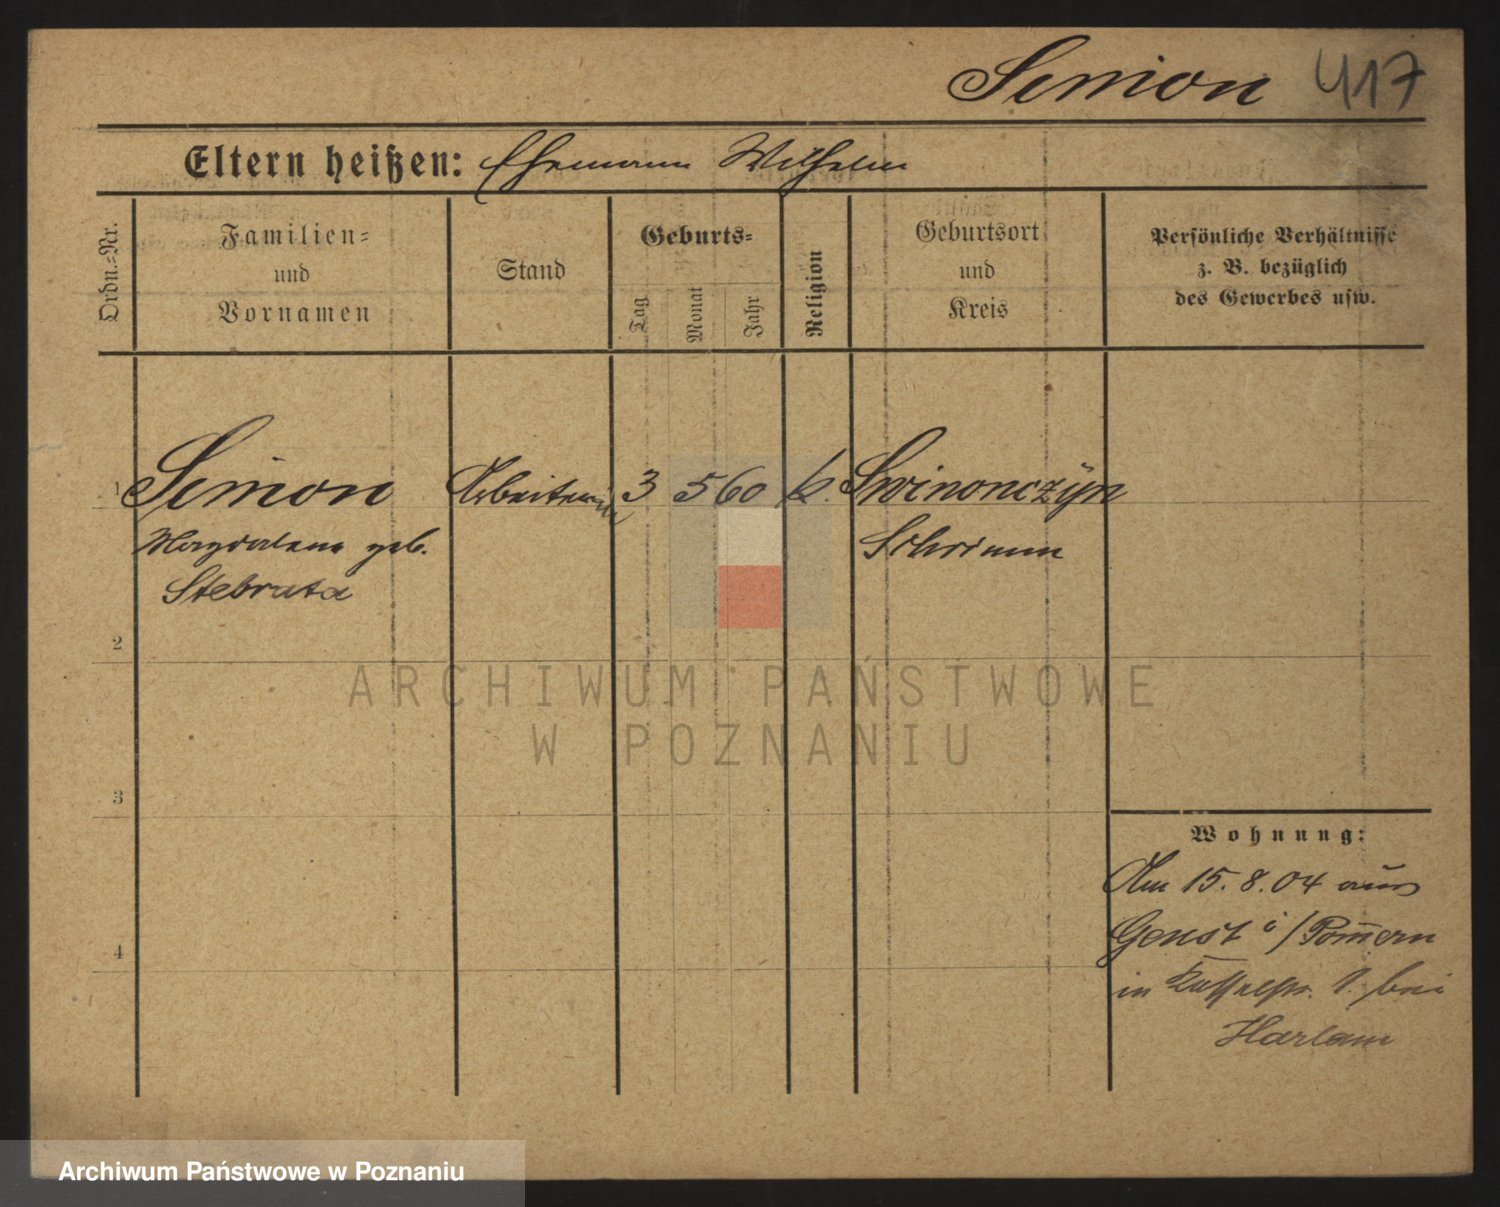 Simon 417
Eltern heißen: Ehemann Wilhelm
Ordn.-Nr.
Familien-
und
Vornamen
Stand
Geburts-
Tag
Monat
Jahr
Religion
Geburtsort
und
Kreis
Persönliche Verhältnisse
z. B. bezüglich
des Gewerbes usw.
1 Simon Arbeiterin 3 5 60 k. Swinonczyn
Magdalena geb. Schrimm
Stebrata
2
3
4
ARCHIWUM PAŃSTWOWE
W POZNANIU
Wohnung:
Am 15. 8. 04 aus
Genst i/Pom̄ern
in 1. bei
Harlam
Archiwum Państwowe w Poznaniu